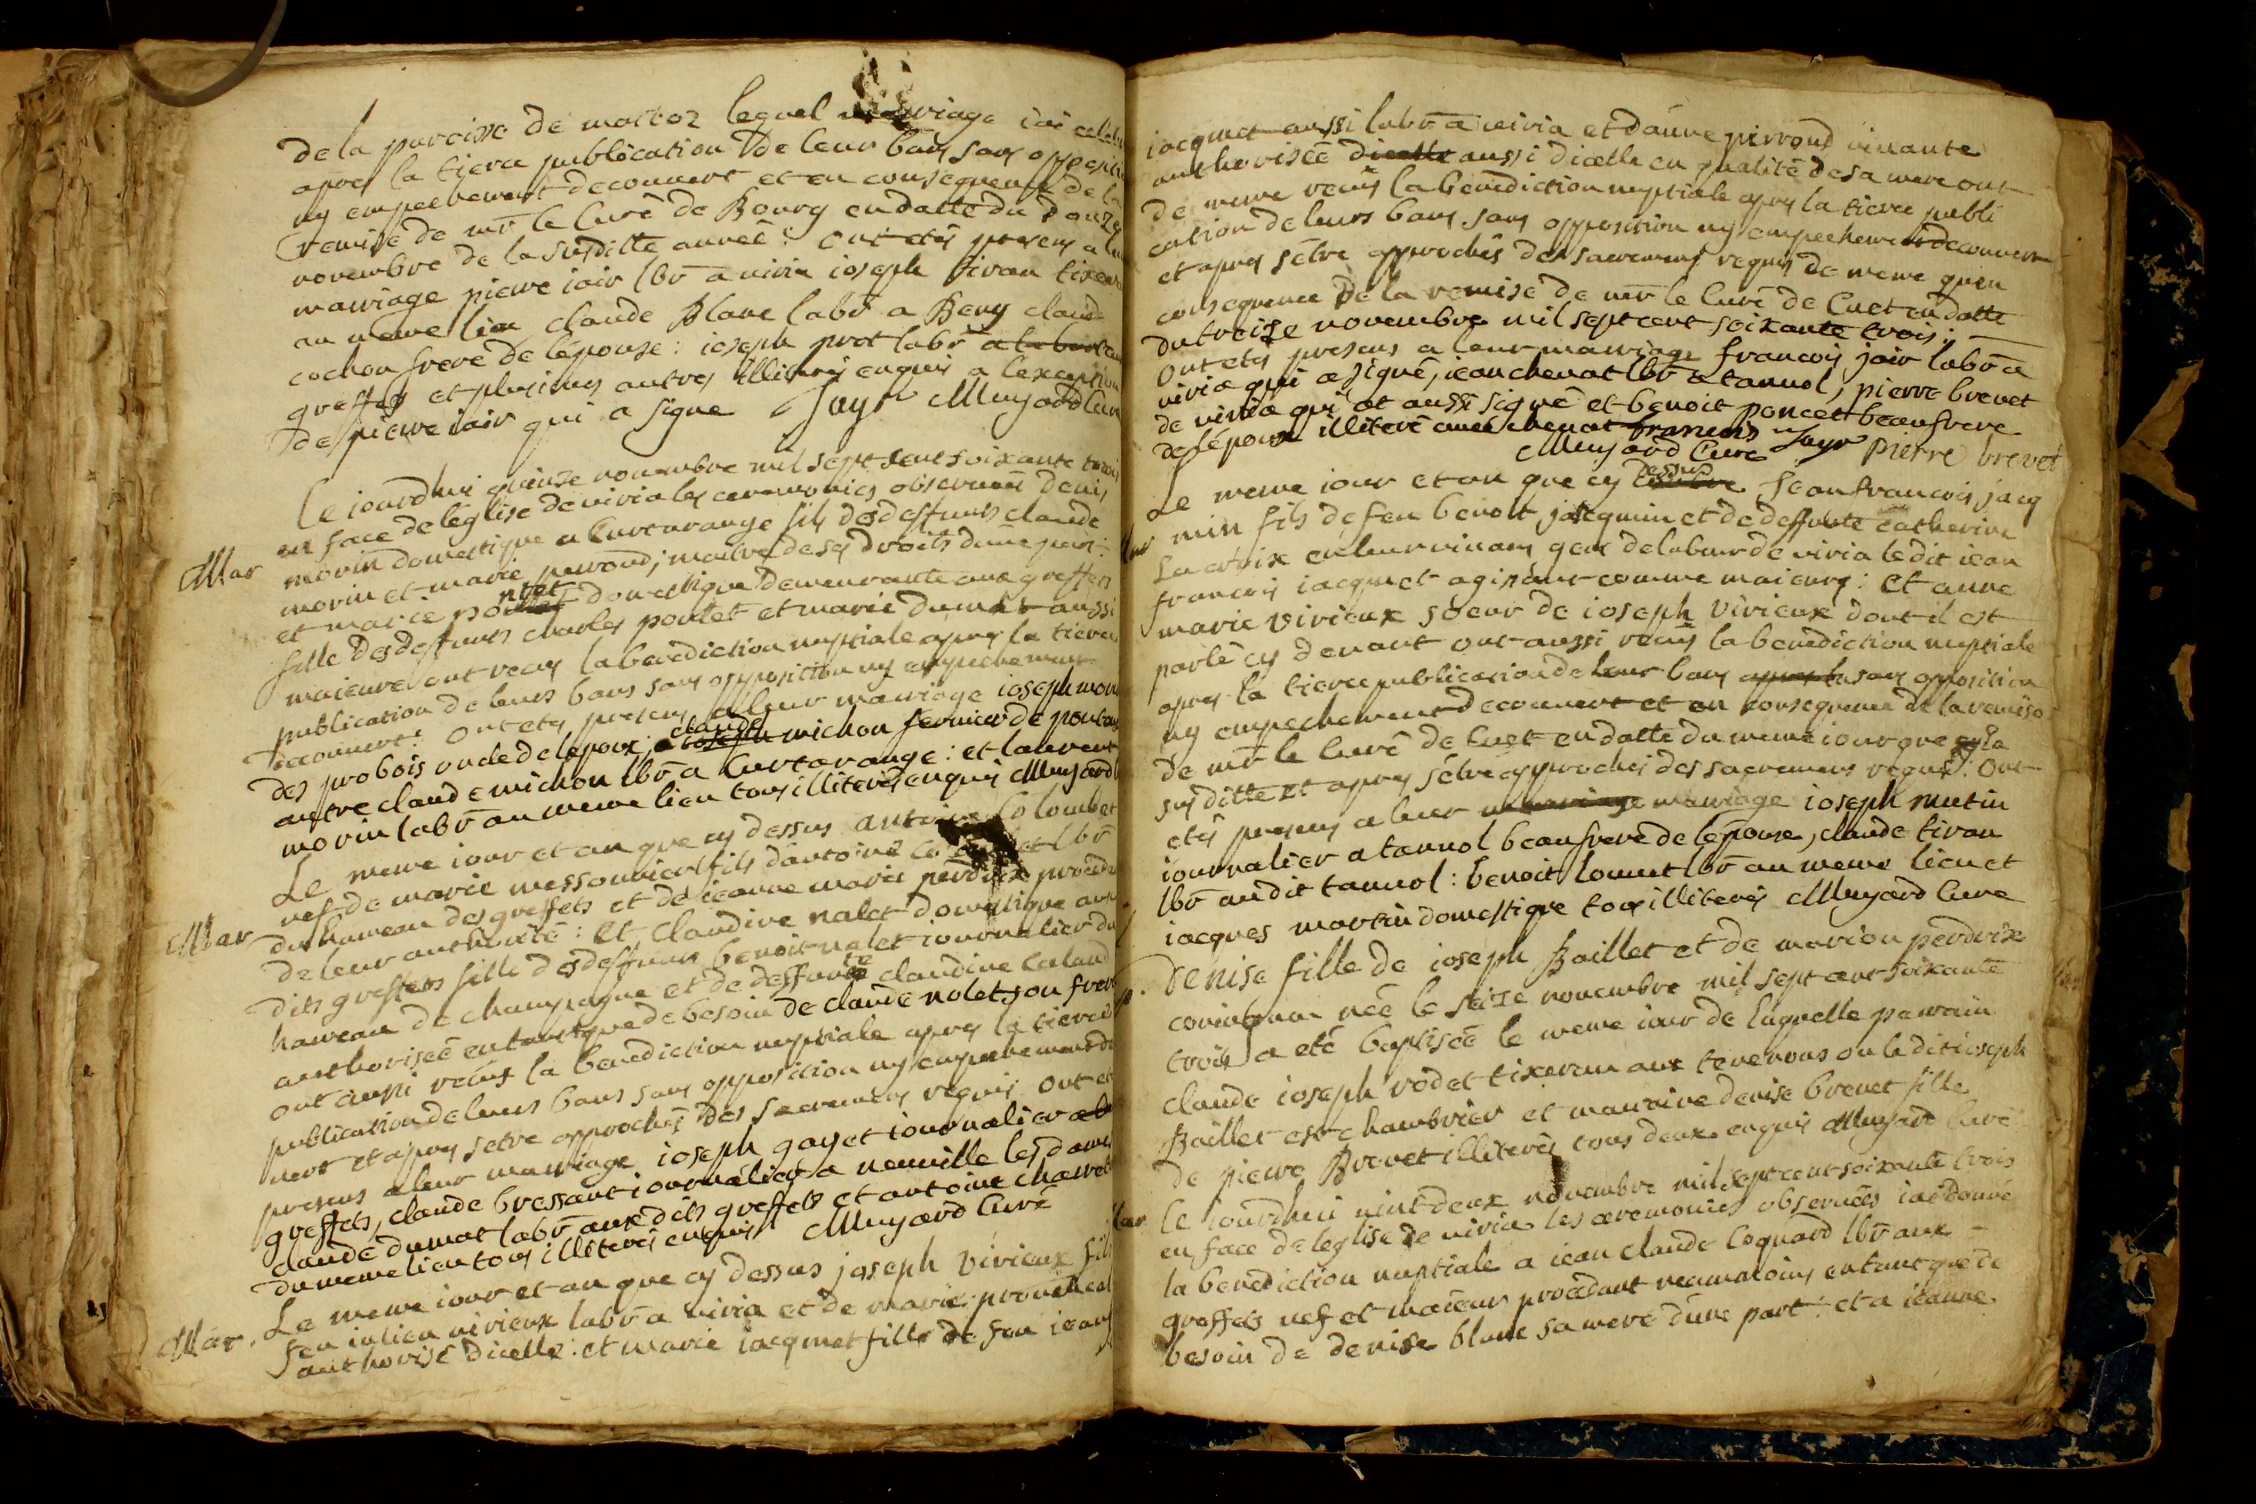 de la paroisse de martoz lequel mariage iai celebr
apres la tierce publication de leur bans sans oppositi
ny empeechement decouvert et en consequense de la
remise de mr le Curé de Bourg en datte du douze
novembre de la susditte anneé : ont etés presens a leur
mariage pierre iair lbr a viria ioseph tiran tixeran
au meme lieu claude Blanc labr a Beny claude
cochon frere de l'epouse : ioseph prot labr
greffets et plusieurs autres illiterés enquis a l'exception
de pierre iair qui a signe Jayr Muyard Curé
Le iourdhui quinze novembre mil sept cent soixante trois
en face de l'église de viria les ceremonies observeés denis
Mar morin domestique a Curtarange fils des deffunts claude
morin et marie perroud ; maitre de ses droits d'une part :
et marie pontet domestique demeurante aux greffets
fille des deffunts charles pontet et marie dumas aussi
maieure ont recus la benediction nuptiale apres la tierce
publication de leurs bans sans opposition ny empeechement
decouvert : ont etes presens a leur mariage ioseph mori
des probois oncle de l'epoux, claude michon fermier de
autre claude michon lbr a Curtarange : et laurent
morin labr au meme lieu tous illiterés enquis Muyard
Le meme iour et an que cy dessus antoine Colombet
vef de marie messonnier fils d'antoine Colombet lbr
Mar du hameau des greffets et de ieanne marie perdrix procedant
de leur authorité : et Claudine nalet domestique aus
dits greffets fille des deffunts benoit nalet iournalier du
hameau de champagne et de deffunte claudine Caland
authoriseé en tant que de besoin de claude nolet son frere
ont aussi recus la benediction nuptiale apres la tierce
publication de leurs bans sans opposition ny empeechement de
vert et apres s'etre approchés des sacremens requis ont et
presens a leur mariage ioseph gayet iournalier
greffets, claude bressant iournalier a neuville les dames
claude dumat labr aux dits greffets et antoine charvet
du meme lieu tous illiterés enquis Muyard Curé
Le meme iour et an que cy dessus joseph Vivieux fils
Mar. feu iulien vivieux labr a viria et de marie
authorisé d'icelle : et marie iacquet fille de feu iean
iacquet aussi labr a viria et d'anne perroud vivante
authoriseé d'icelle aussi d'icelle en qualité de sa mere ont
de meme recus la benediction nuptiale apres la tierce publi
cation de leurs bans sans opposition ny empeechement decouvert
et apres s'etre approchés des sacremens requis de meme quen
consequence de la remise de mr le Curé de Cuet en datte
du treize novembre mil sept cent soixante trois :
ont etes presens a leur mariage francois jair labr a
viria qui a signé, iean chenat lbr a tannol, pierre brevet
de viria qui at aussi signé et benoit poncet beaufrere
de l'epoux illiteré avec chenat francois Jayr
Muyard Cure Pierre brevet
Le meme iour et an que cy dessus Jean francois jacq
Mar min fils de feu benoit jacquin et de deffunte catherine
La croix en leur vivans gens de labeur de viria le dit iean
francois iacquet agissant comme maieurs : Et anne
marie Vivieux soeur de ioseph Vivieux dont il est
parlé cy devant ont aussi recus la benediction nuptiale
apres la tierce publication de leur bans apres la sans opposition
ny empeechement decouvert et en consequence de la remise
de mr le Curé de Cuet en datte du meme iour que cy la
susditte et apres s'etre approches des sacremens requis : ont
etés presens a leur mariage mariage ioseph mutin
iournalier a tannol beaufrere de l'epouse, claude tiran
lbr au dit tannol : benoit Convert lbr au meme lieu et
iacques martin domestique tous illiterés Muyard Cure
B. Denise fille de ioseph Baillet et de marion perdrix
coniointe neé le seize novembre mil sept cent soixante
trois a eté baptiseé le meme iour de laquelle parrain
claude ioseph rodet tixeran aux tevenons ou le dit ioseph
Baillet est chambrier et marraine denise brevet fille
de pierre Brevet illiterés tous deux enquis Muyard Curé
Le iourdhui vint deux novembre mil sept cent soixante trois
Mar en face de l'eglise de viria les ceremonies observeés iai donné
la benediction nuptiale a iean claude Coquard lbr aux
greffets vef et maieur procedant neanmoins en tant que de
besoin de denise blanc sa mere d'une part : et a ieanne